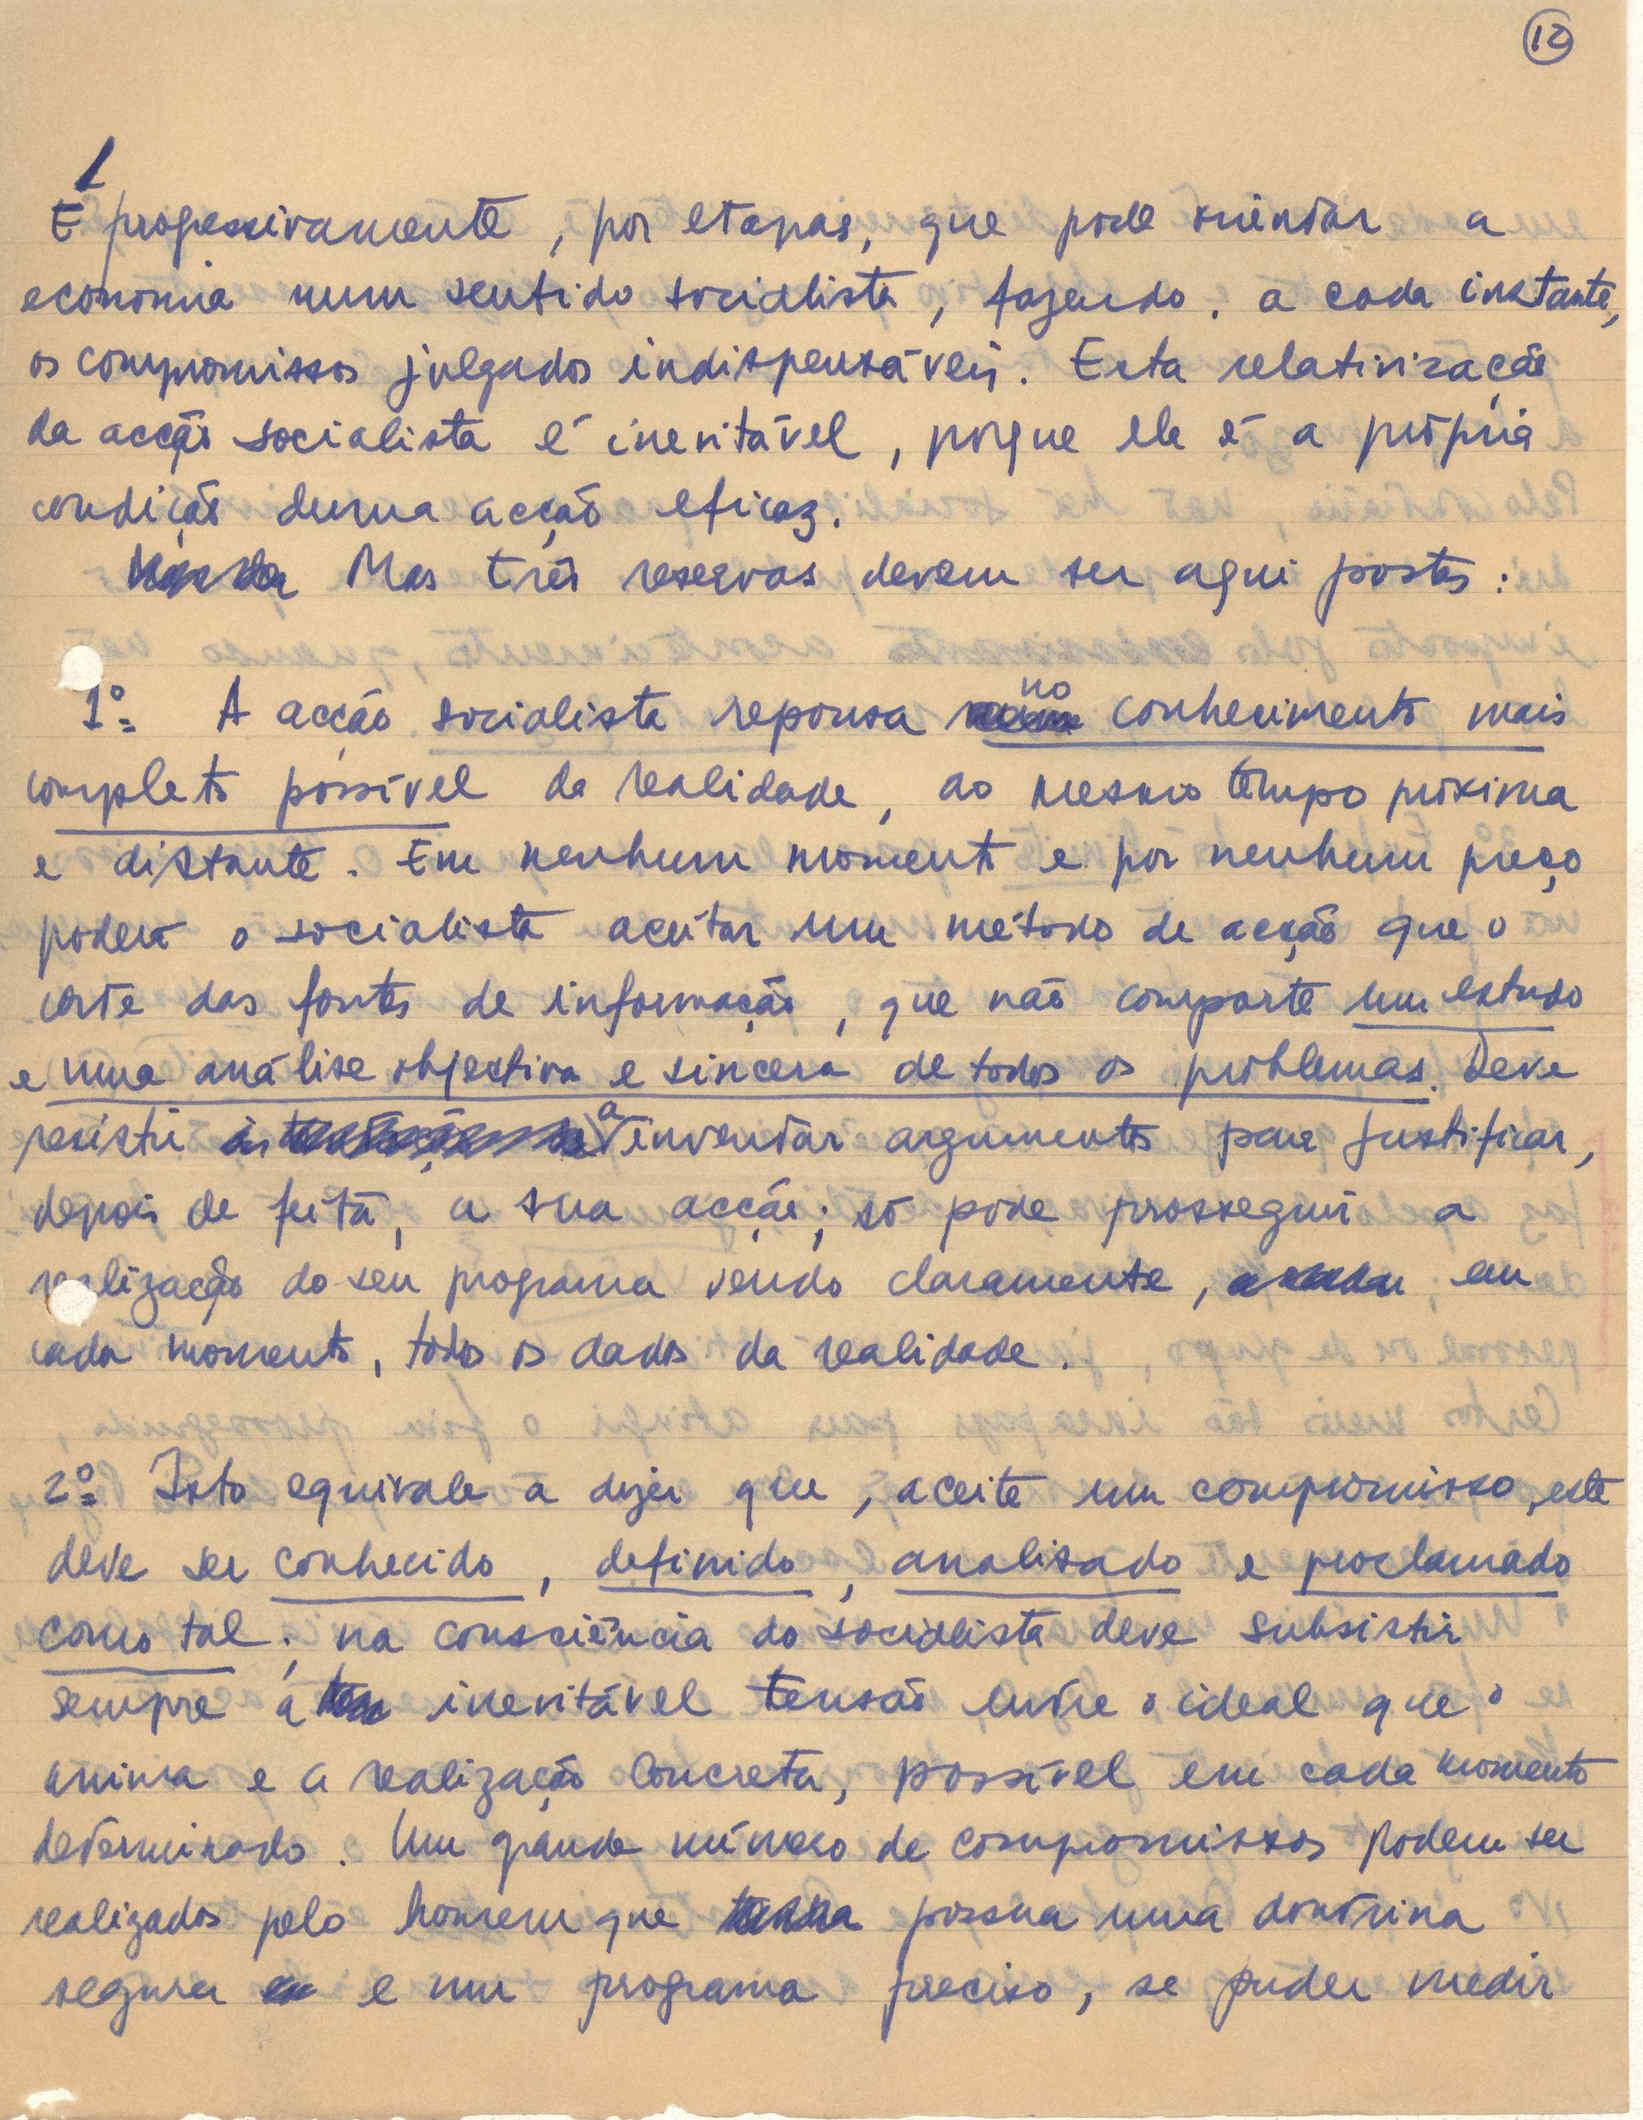 12
É progressivamente, por etapas, que pode orientar a
economia num sentido socialista, fazendo, a cada instante,
os compromissos julgados indispensáveis. Esta relativização
da acção socialista é inevitável, porque ela é a própria
condição duma acção eficaz.
Mas três reservas devem ser aqui postas:
1º A acção socialista repousa no conhecimento mais
completo possível da realidade, ao mesmo tempo próxima
e distante. Em nenhum momento e por nenhum preço
poderá o socialista aceitar um método de acção que o
corte das fontes de informação, que não comporte um estudo
e uma análise objectiva e sincera de todos os problemas. Deve
resistir a inventar argumentos para justificar,
depois de feita, a sua acção; só pode prosseguir a
realização do seu programa vendo claramente, em
cada momento, todos os dados da realidade.
2º Isto equivale a dizer que, aceite um compromisso, este
deve ser conhecido, definido, analisado e proclamado
como tal; na consciência do socialista deve subsistir
sempre a inevitável tensão entre o ideal que o
anima e a realização concreta, possível em cada momento
determinado. Um grande número de compromissos podem ser
realizados pelo homem que possua uma doutrina
segura e um programa preciso, se puder medir